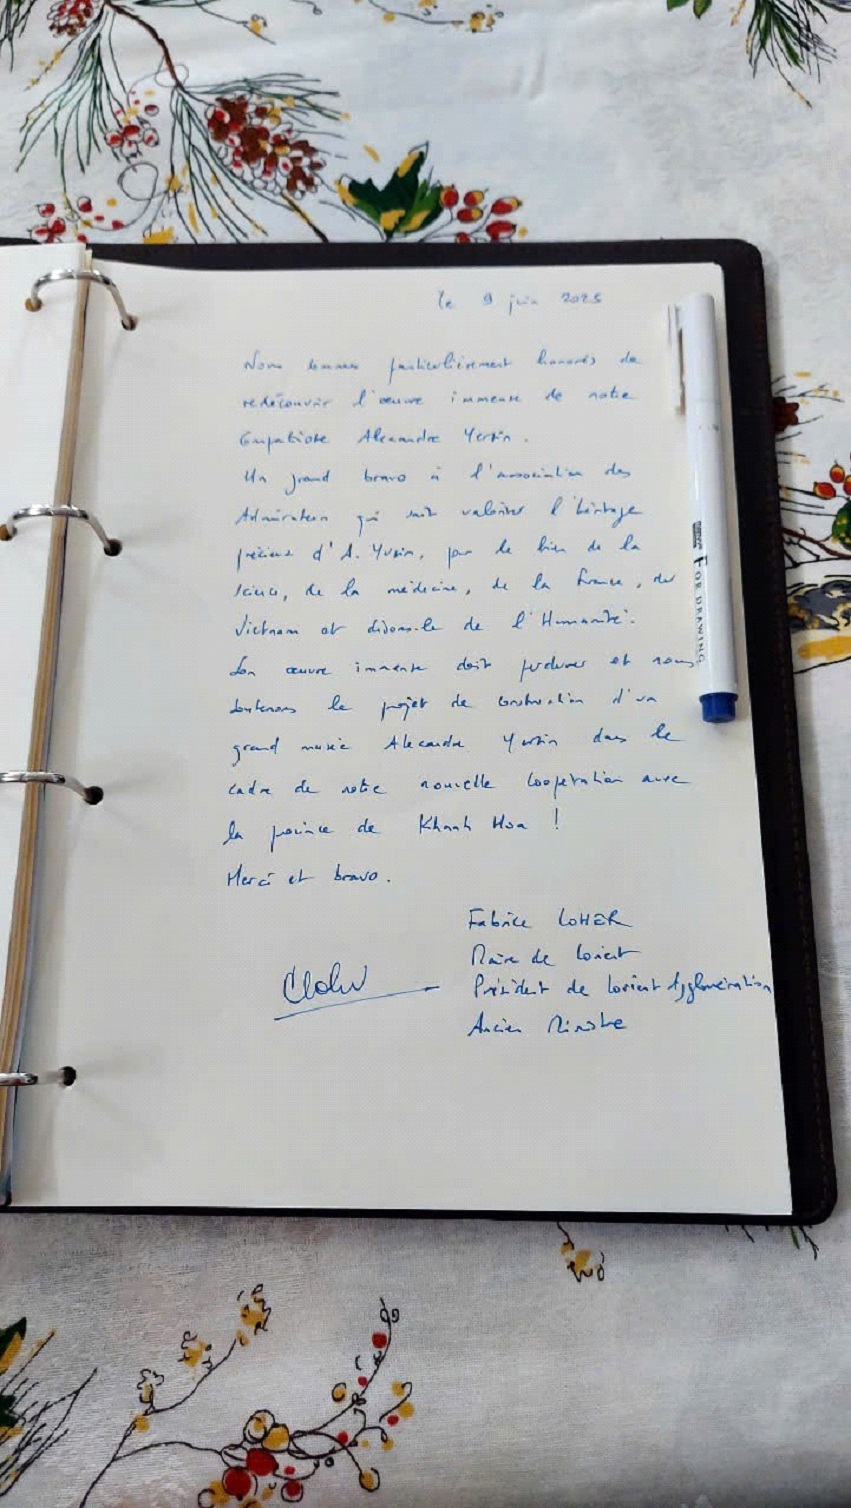 le 9 juin 2025
Nous sommes particulièrement honorés de
redécouvrir l'œuvre immense de notre
Compatriote Alexandre Yersin.
Un grand bravo à l'association des
Admirateurs qui sait valoriser l'héritage
précieux d'A. Yersin, pour le bien de la
science, de la médecine, de la France, du
Vietnam et disons-le de l'Humanité.
Son œuvre immense doit perdurer et nous
soutenons le projet de construction d'un
grand musée Alexandre Yersin dans le
cadre de notre nouvelle coopération avec
la province de Khanh Hoa !
Merci et bravo.
Fabrice LOHER
Maire de Lorient
Président de Lorient Agglomération
Ancien Ministre
FOR DRAWING